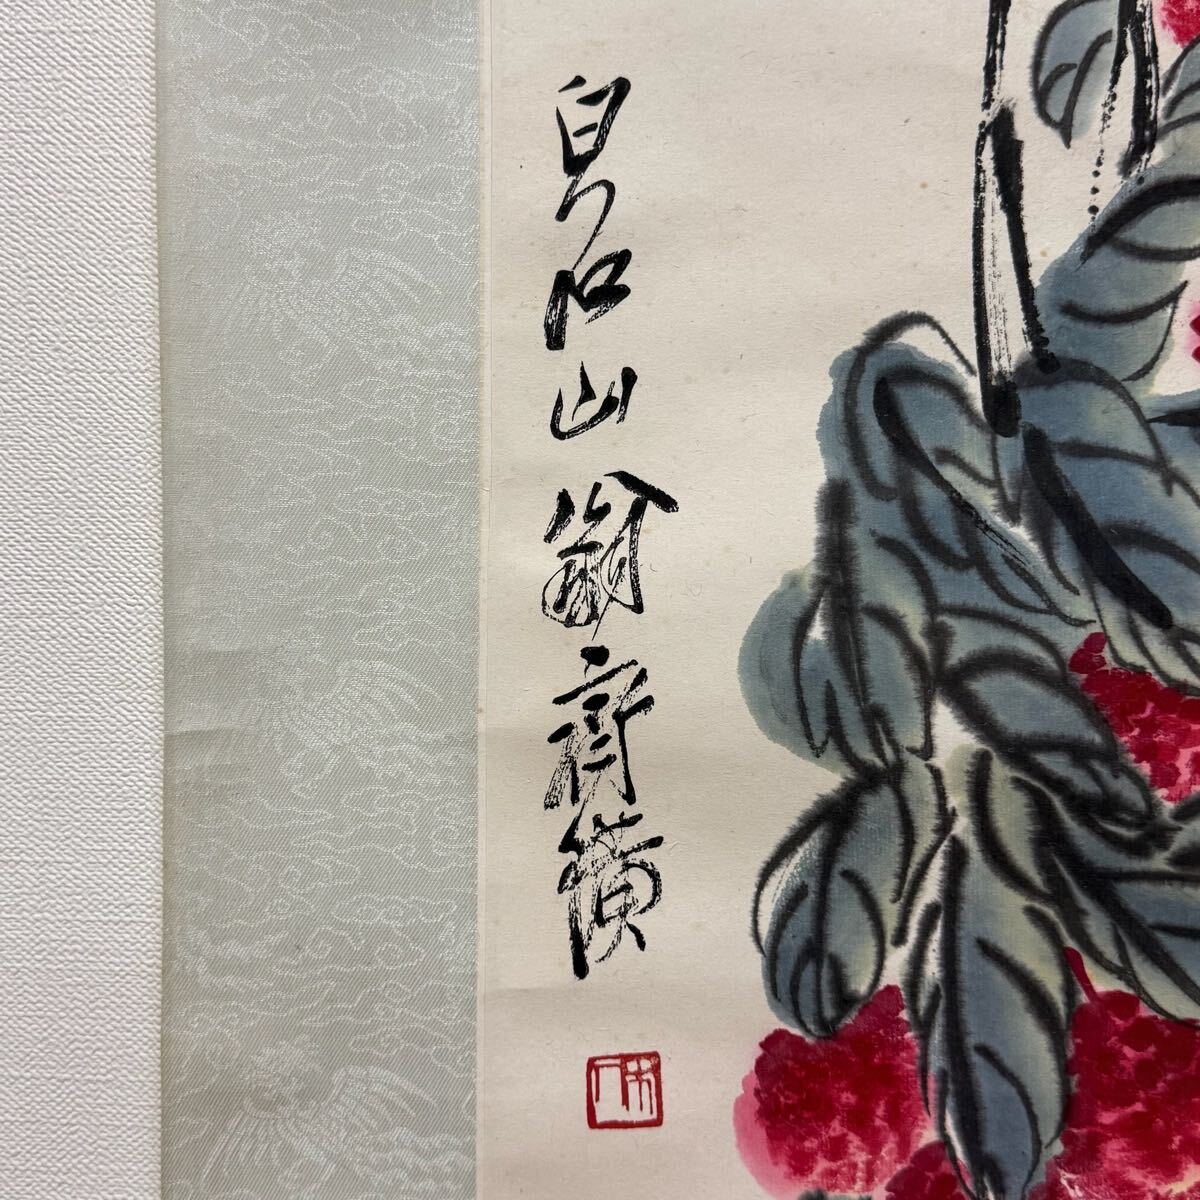 白石山翁齊璜
木人